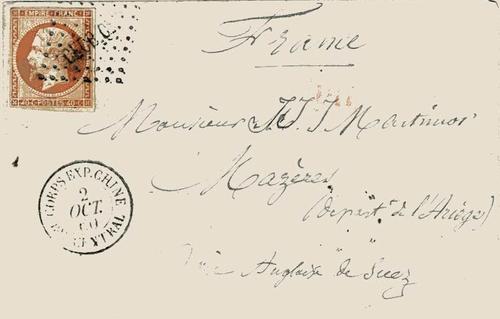 EMPIRE FRANC.
40·C·POSTES·40·C
France
Monsieur
Mazères
(Départ. de l'Ariège)
CORPS EXP. CHINE
2
OCT.
60
CENTRAL
Voie Anglaise de Suez